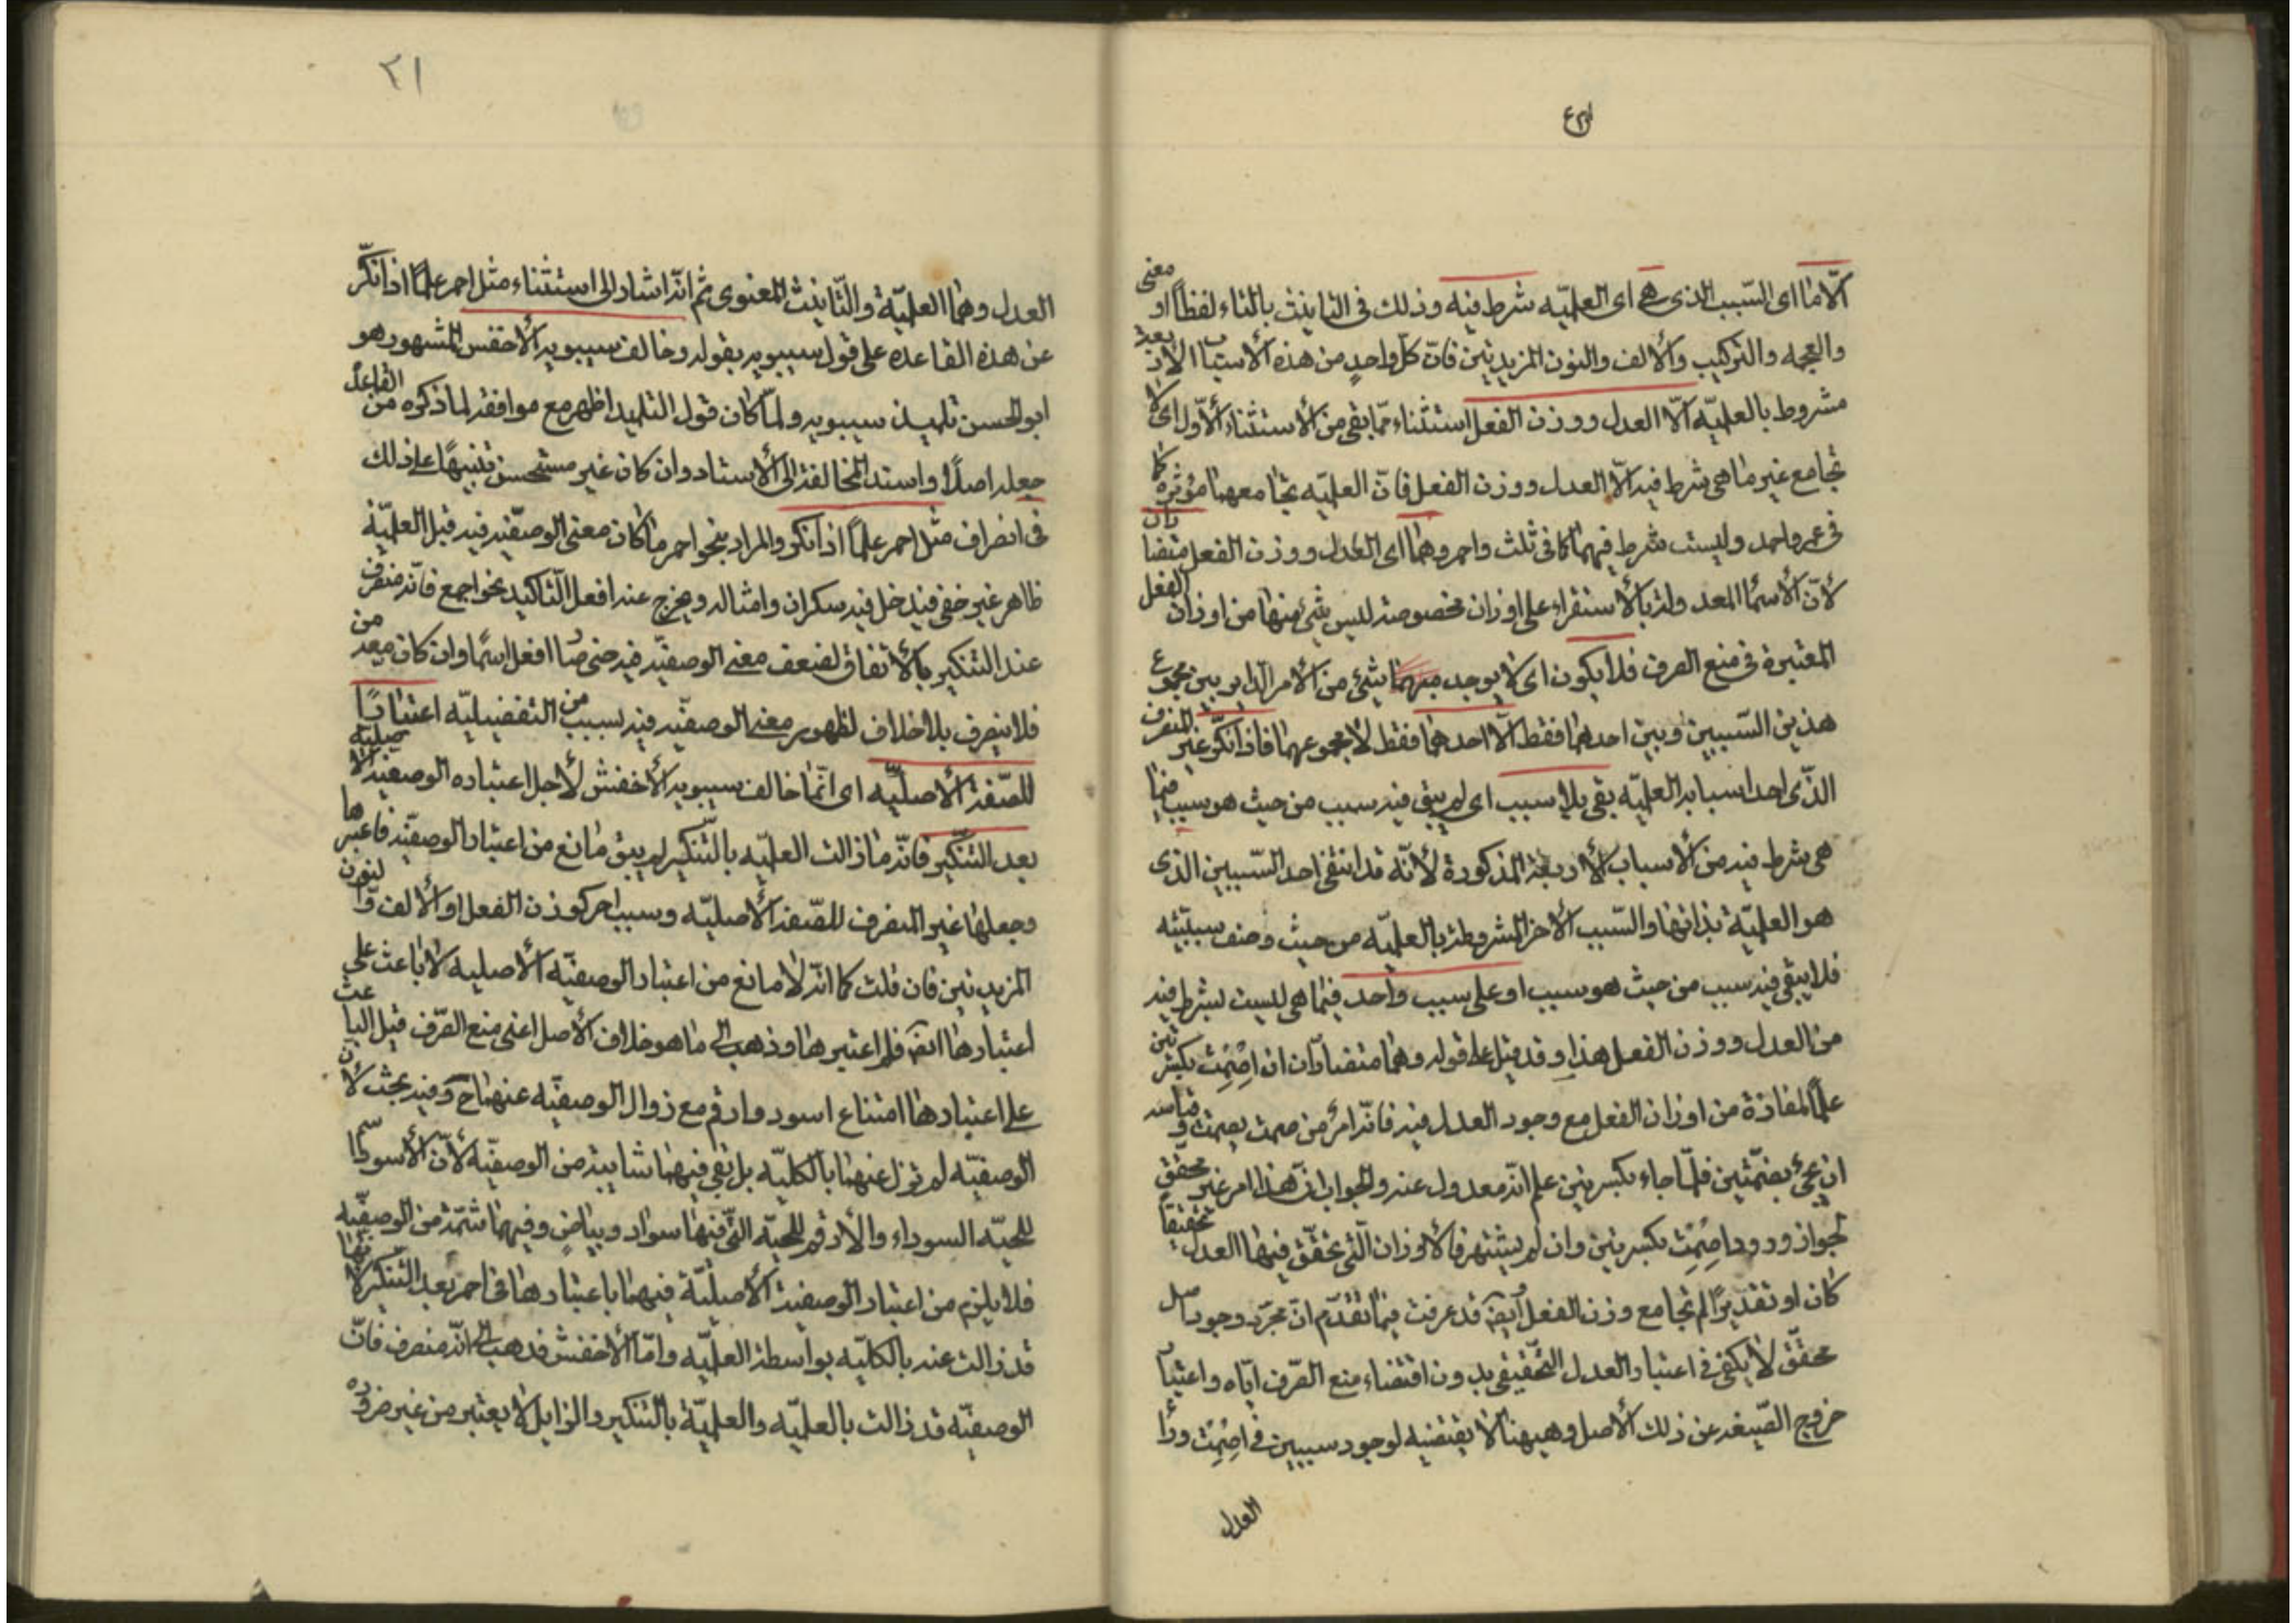 الّا ما اى السّبب الذى هى اى العلميّه شرط فيه وذلك فى التانيث بالتاء لفظاً او معنى
والعجمه والتركيب والالف والنون المزيدتين فانّ كلّ واحدٍ من هذه الأسباب الاربعة
مشروط بالعلميّه الّا العدل ووزن الفعل استثناء ممّا بقى من الأستثناء الأوّل اى لا
تجامع غير ما هى شرط فيه الّا العدل ووزن الفعل فانّ العلميّه تجامعهما مؤثره كما
فى عمر واحمد وليست شرط فيهما كما فى ثلث واحمر وهما اى العدل ووزن الفعل متضادان
لأنّ الأسما المعدولة بالأستقراء على اوزان مخصوصة ليس شئ منها من اوزان الفعل
المعتبرة فى منع الصرف فلا يكون اى لا يوجد شئ من الأمر الداير بين مجموع
هذين السّببين وبين احدهما فقط الّا احدهما فقط لا مجموعهما فاذا نكّر غير المنصرف
الذّى احد اسبابه العلميّه بقى بلا سبب اى لم يبق فيه سبب من حيث هو سبب فيما
هى شرط فيه من الأسباب الأربعة المذكورة لأنّه قد انتفى احد السّببين الذى
هو العلميّة بذاتها والسّبب الأخر المشروط بالعلميّه من حيث وصف سببيّته
فلا يبقى فيه سبب من حيث هو سبب او على سبب واحد فيما هى ليست بشرط فيه
من العدل ووزن الفعل هذا وقد قيل على قوله وهما متضادّان ان اِصْمِت بكسرتين
علماً للمفازة من اوزان الفعل مع وجود العدل فيه فانّه امر من صمت يصمت وقياسه
ان يجئ بضمّتين فلمّا جاء بكسرتين علم انّه معدول عنه والجواب انّ هذا امر غير محقّق
لجواز ورود اصمت بكسرتين وان لم يشتهر فالأوزان التى تحقّق فيها العدل تحقيقاً
كان او تقديرًا لم تجامع وزن الفعل وايضًا قد عرفت فيما تقدّم انّ مجرّد وجود اصل
محقّق لا يكفى فى اعتبار العدل التحقيقى بدون اقتضاء منع الصّرف ايّاه واعتبار
خروج الصّيغه عن ذلك الأصل وههنا لا يقتضيه لوجود سببين فى اصمت وراء
العدل
٢١
العدل وهما العلميّة والتّانيث المعنوى ثم انّه اشار الى استثناء مثل احمر علماً اذا نكّر
عن هذه القاعده على قول سيبويه بقوله وخالف سيبويه الأخفش المشهور هو
ابو الحسن تلميذ سيبويه ولمّا كان قول التلميذ اظهر مع موافقته لما ذكره من القاعدة
جعله اصلاً واسند المخالفة الى الأستاد وان كان غير مستحسن تنبيهًا على ذلك
فى انصراف مثل احمر علماً اذا نكر والمراد بنحو احمر ما كان معنى الوصفيّه فيه قبل العلميّة
ظاهر غير خفى فيدخل فيه سكران وامثاله ويخرج عنه افعل التّاكيد نحو اجمع فانّه منصرف
عند التنكير بالأتفاق لضعف معنى الوصفيّه فيه حتى صار افعل اسمًا وان كان معه من
فلا ينصرف بلا خلاف لظهور معنى الوصفيّه فيه بسبب من التفضيليّه اعتبارًا
للصّفة الأصليّه اى انّما خالف سيبويه الأخفش لأجل اعتباره الوصفيه الأصليّه
بعد التّنكير فانّه ما زالت العلميّه بالتّنكير لم يبق مانع من اعتبار الوصفيّه فاعتبرها
وجعلها غير المنصرف للصّفة الأصليّه وسبب اخر كوزن الفعل او الألف والنون
المزيدتين فان قلت كما انّه لا مانع من اعتبار الوصفيّه الأصليه لا باعث على
اعتبارها ايضًا فلم اعتبرها وذهب الى ما هو خلاف الأصل اعنى منع الصّرف قيل الباعث
على اعتبارها امتناع اسود وارقم مع زوال الوصفيّه عنهما ح وفيه بحث لأن
الوصفيّه لم تزل عنهما بالكليّه بل بقى فيهما شايبة من الوصفيّه لأنّ الأسود اسم
للحيّه السوداء والأرقم للحيّه التّى فيها سواد وبياض وفيهما شمّة من الوصفيّه
فلا يلزم من اعتبار الوصفية الأصليّة فيهما باعتبارها فى احمر بعد التّنكير لأنها
قد زالت عنه بالكليّه بواسطة العلميّه وامّا الأخفش فذهب الى انّه منصرف فانّ
الوصفيّه قد زالت بالعلميّه والعلميّة بالتّنكير والزايل لا يعتبر من غير ضروره